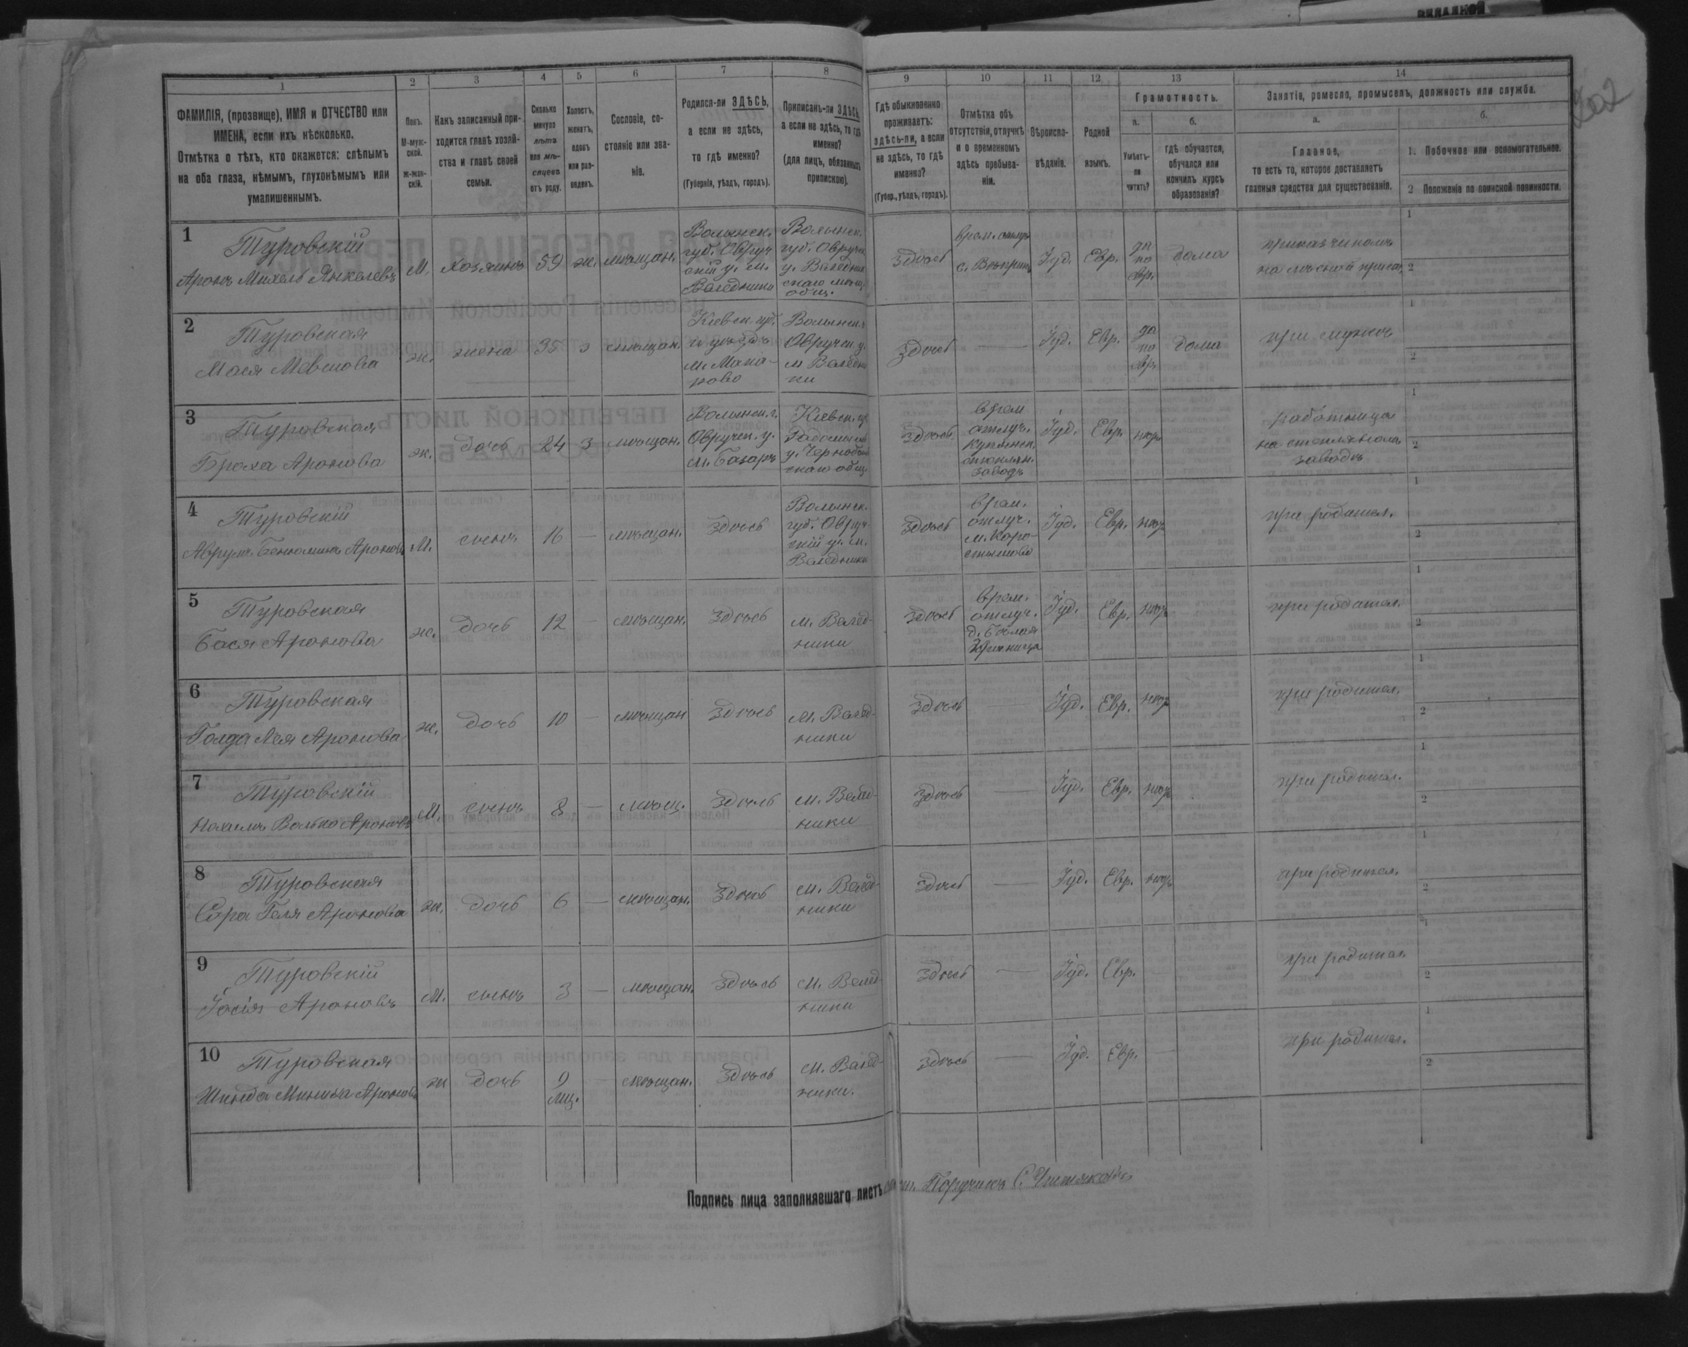 1 2 3 4 5 6 7 8 9 10 11 12 13 14
ФАМИЛІЯ, (прозвище), ИМЯ и ОТЧЕСТВО или
ИМЕНА, если ихъ нѣсколько.
Отмѣтка о тѣхъ, кто окажется: слѣпымъ
на оба глаза, нѣмымъ, глухонѣмымъ или
умалишеннымъ.
Полъ.
М-муж-
ской.
Ж-жен-
скій.
Какъ записанный при-
ходится главѣ хозяй-
ства и главѣ своей
семьи.
Сколько
минуло
лѣтъ
или мѣ-
сяцевъ
отъ роду.
Холостъ,
женатъ,
вдовъ
или раз-
веденъ.
Сословіе, со-
стояніе или зва-
ніе.
Родился-ли ЗДѢСЬ,
а если не здѣсь,
то гдѣ именно?
(Губернія, уѣздъ, городъ).
Приписанъ-ли ЗДѢСЬ,
а если не здѣсь, то гдѣ
именно?
(для лицъ, обязанныхъ
припискою).
Гдѣ обыкновенно
проживаетъ:
здѣсь-ли, а если
не здѣсь, то гдѣ
именно?
(Губер., уѣздъ, городъ).
Отмѣтка объ
отсутствіи, отлучкѣ
и о временномъ
здѣсь пребыва-
ніи.
Вѣроиспо-
вѣданіе.
Родной
языкъ.
Грамотность.
а.
Умѣетъ-
ли
читать?
б.
гдѣ обучается,
обучался или
кончилъ курсъ
образованія?
Занятіе, ремесло, промыселъ, должность или служба.
а.
Главное,
то есть то, которое доставляетъ
главныя средства для существованія.
б.
1. Побочное или вспомогательное.
2 Положеніе по воинской повинности.
1
Туровскій
Аронъ Михель Янкелевъ
М.
Хозяинъ
59
ж.
мѣщан.
Волынск.
губ. Овруч
скій у. м.
Валедники
Волынск.
губ. Овруч
у. Валедни
скаго мѣщ.
общ.
здѣсь
врем. отлуч.
Іуд.
Евр.
да
по
евр.
дома
2
Туровская
Мася Мевшова
ж.
жена
35
з
мѣщан.
Кіевск. губ.
и уѣзда
м. Мака-
рово
Волынск.
Овручск. у.
м Валедни
ки
здѣсь
Іуд.
Евр.
да
по
евр.
дома
при мужѣ
3
Туровская
Броха Аронова
ж.
дочь
24
з
мѣщан.
Волынск. г.
Овручск. у.
м. Базаръ
Кіевск. гу.
Радомысл
у. Чернобыль
скаго общ
здѣсь
врем
отлуч.
стеклян.
заводъ
Іуд.
Евр.
нѣтъ
работница
на стеклянномъ
заводѣ
4
Туровскій
Аврумъ Беньюминъ Ароновъ
М.
сынъ
16
мѣщан.
здѣсь
Волынск.
губ. Овруч
скій у. м.
Валедники
здѣсь
врем.
отлуч.
м. Коро
стышевъ
Іуд.
Евр.
нѣтъ
при родител.
5
Туровская
Бася Аронова
ж.
дочь
12
мѣщан.
здѣсь
м. Валед-
ники
здѣсь
врем.
отлуч.
Іуд.
Евр.
нѣтъ
при родител.
6
Туровская
Голда Лея Аронова
ж.
дочь
10
мѣщан
здѣсь
м. Валед-
ники
здѣсь
Іуд.
Евр.
нѣтъ
при родител.
7
Туровскій
Волько Ароновъ
М.
сынъ
8
мѣщ.
здѣсь
м. Валед-
ники
здѣсь
Іуд.
Евр.
нѣтъ
при родител.
8
Туровская
Сура Геля Аронова
ж.
дочь
6
мѣщан.
здѣсь
м. Валед-
ники
здѣсь
Іуд.
Евр.
нѣтъ
при родител.
9
Туровскій
Іосія Ароновъ
М.
сынъ
3
мѣщан.
здѣсь
м. Валед-
ники
здѣсь
Іуд.
Евр.
при родител.
10
Туровская
Аронова
ж
дочь
9
мѣц.
мѣщан.
здѣсь
м. Валед-
ники.
здѣсь
Іуд.
Евр.
при родител.
Подпись лица заполнявшаго листъ